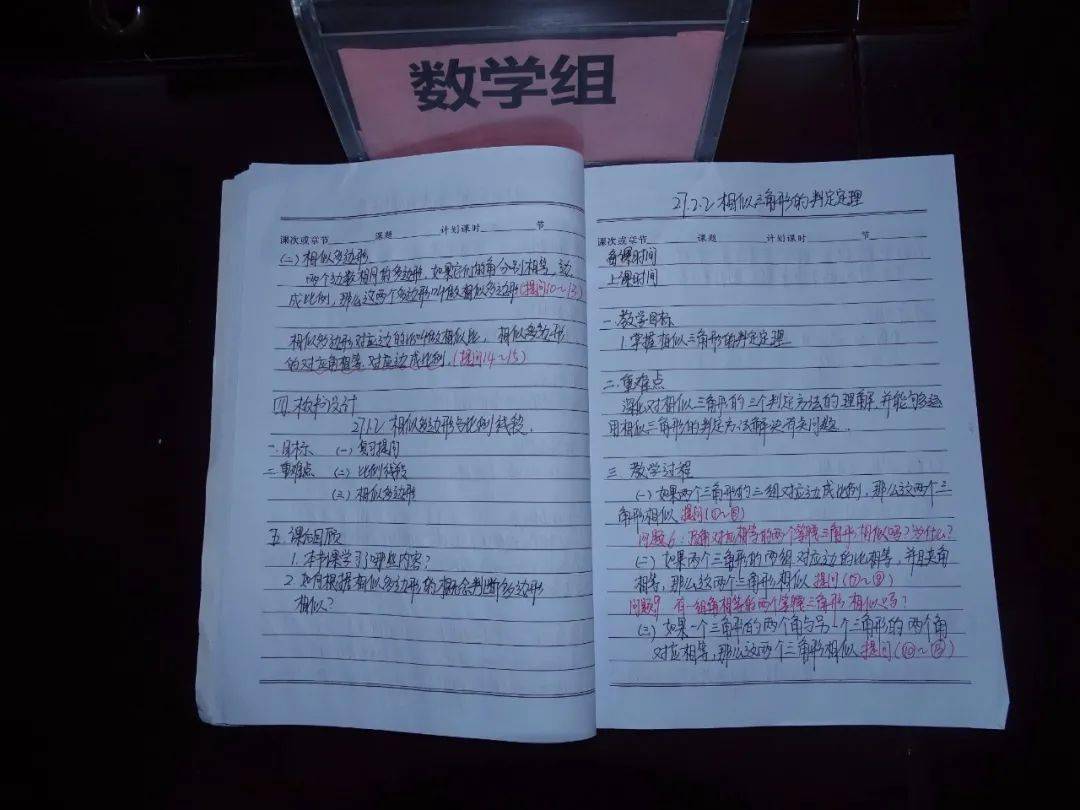 数学组
课次或章节 课题 计划课时 节
(二)相似多边形
两个边数相同的多边形,如果它们的角分别相等,边
成比例,那么这两个多边形叫做相似多边形(提问10~13)
相似多边形对应边的比叫做相似比,相似多边形
的对应角相等,对应边成比例。(提问14~15)
四.板书设计
27.1.2 相似多边形与比例线段.
一.目标 (一)复习提问
二.重难点 (二)比例线段
(三)相似多边形
五.课后回顾
1.本节课学习了哪些内容?
2.如何根据相似多边形的概念判断多边形
相似?
27.2.2 相似三角形的判定定理
课次或章节 课题 计划课时 节
备课时间
上课时间
一.教学目标
1.掌握相似三角形的判定定理
二.重难点
深化对相似三角形的三个判定方法的理解,并能够运
用相似三角形的判定方法解决有关问题.
三.教学过程
(一)如果两个三角形的三组对应边成比例,那么这两个三
角形相似 提问
问题6:底角对应相等的两个等腰三角形相似吗?为什么?
(二)如果两个三角形的两组对应边的比相等,并且夹角
相等,那么这两个三角形相似 提问
问题9 有一组角相等的两个等腰三角形相似吗?
(三)如果一个三角形的两个角与另一个三角形的两个角
对应相等,那么这两个三角形相似 提问